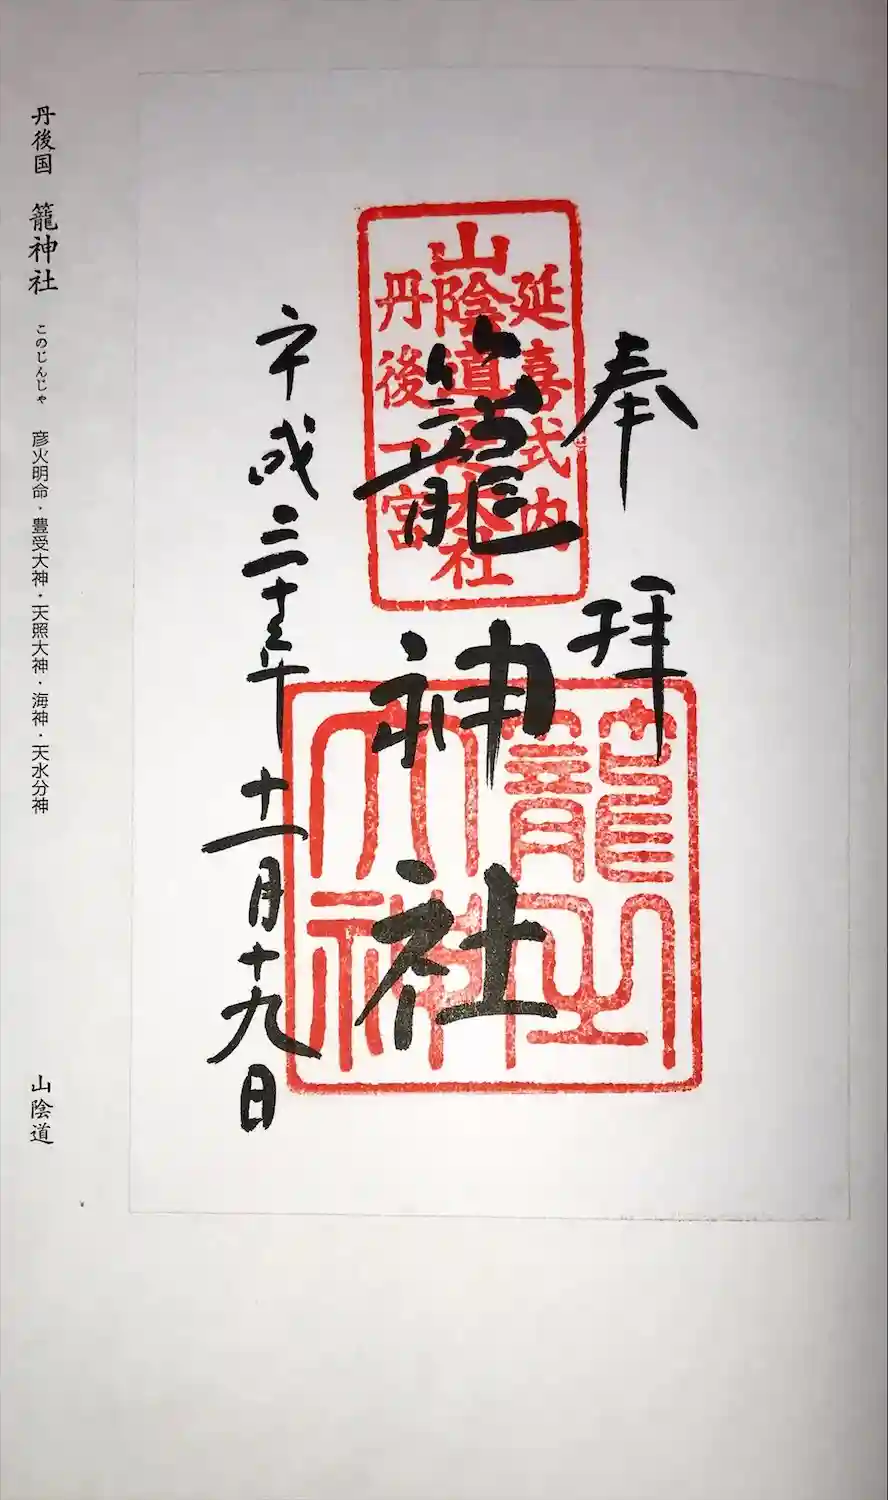 奉拝
延喜式内
山陰道
大社
丹後一宮
籠神社
籠之
大神
平成三十年十一月十九日
丹後国 籠神社 このじんじゃ 彦火明命・豊受大神・天照大神・海神・天水分神 山陰道